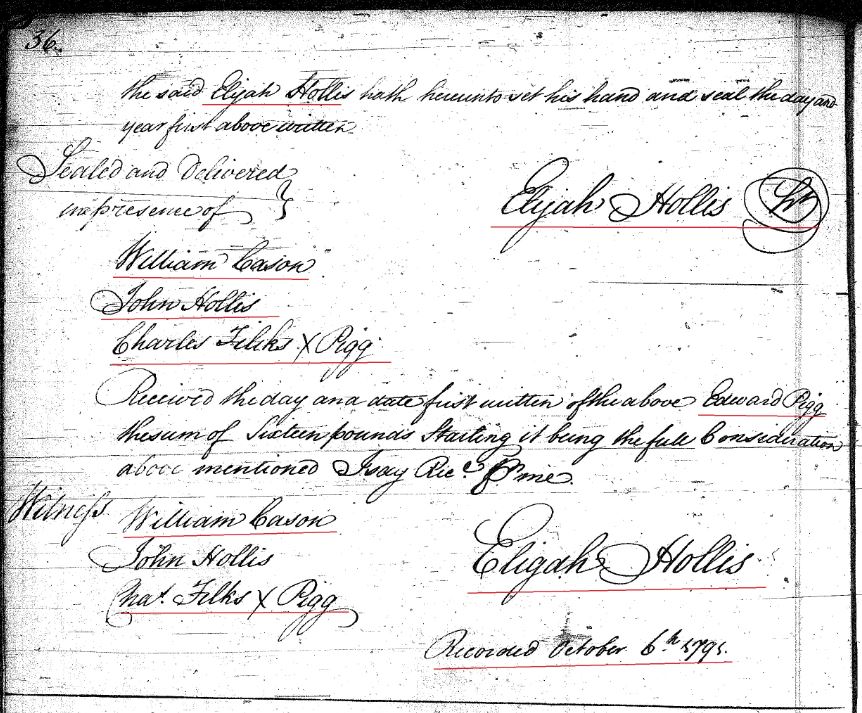 36.
the said Elijah Hollis hath hereunto set his hand and seal the day and
year first above written
Sealed and Delivered
in presence of }
Elijah Hollis LS
William Cason
John Hollis
Charles Filks X Pigg
Received the day and date first written of the above Edward Pigg
the sum of Sixteen pounds Starling it being the full Consideration
above mentioned I say Rec.e P me.
Witness
William Cason
John Hollis
Chas. Filks X Pigg
Eligah Hollis
Recorded October 6th 1791.